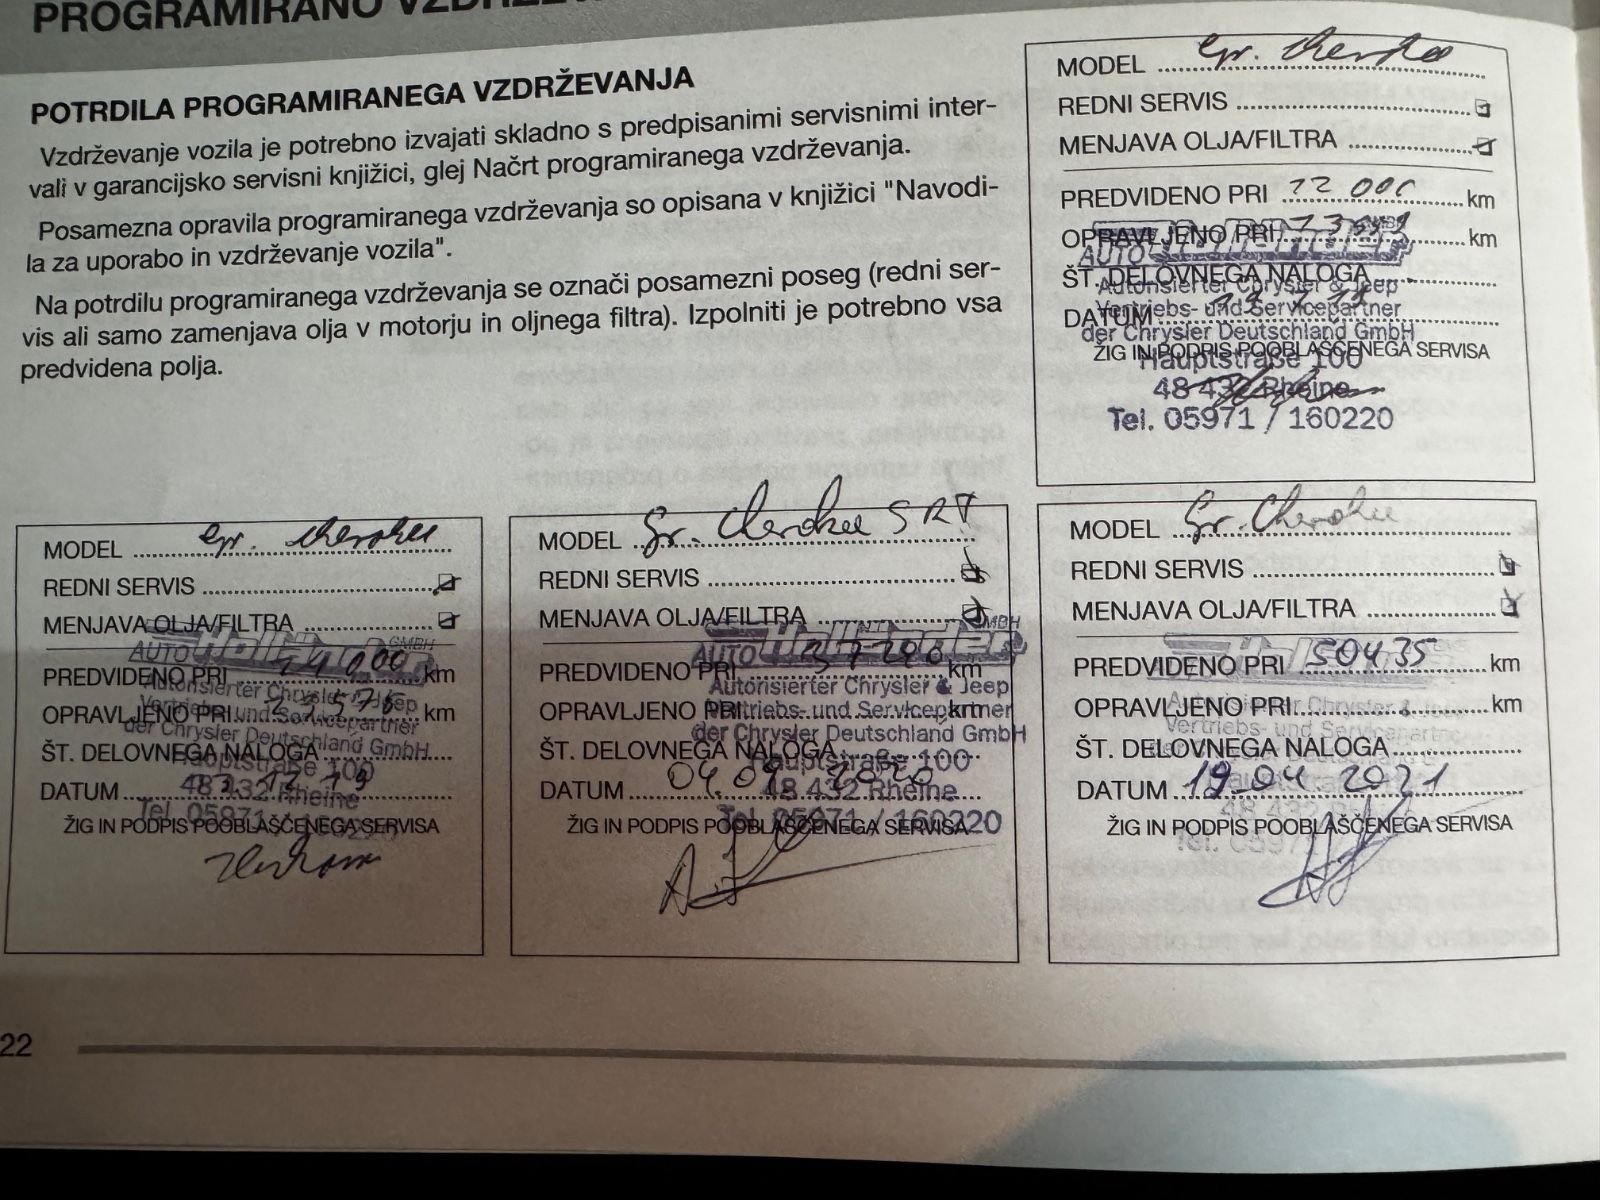 PROGRAMIRANO
POTRDILA PROGRAMIRANEGA VZDRŽEVANJA
Vzdrževanje vozila je potrebno izvajati skladno s predpisanimi servisnimi inter-
vali v garancijsko servisni knjižici, glej Načrt programiranega vzdrževanja.
Posamezna opravila programiranega vzdrževanja so opisana v knjižici "Navodi-
la za uporabo in vzdrževanje vozila".
Na potrdilu programiranega vzdrževanja se označi posamezni poseg (redni ser-
vis ali samo zamenjava olja v motorju in oljnega filtra). Izpolniti je potrebno vsa
predvidena polja.
MODEL Gr. Cherokee
REDNI SERVIS
MENJAVA OLJA/FILTRA
PREDVIDENO PRI km
OPRAVLJENO PRI km
AUTO Holländer GMBH
ŠT. DELOVNEGA NALOGA
Autorisierter Chrysler & Jeep
Vertriebs- und Servicepartner
DATUM
der Chrysler Deutschland GmbH
ŽIG IN PODPIS POOBLAŠČENEGA SERVISA
Hauptstraße 100
48 432 Rheine
Tel. 05971 / 160220
MODEL Gr. Cherokee
REDNI SERVIS
MENJAVA OLJA/FILTRA
AUTO Holländer GMBH
PREDVIDENO PRI 24 000 km
Autorisierter Chrysler & Jeep
Vertriebs- und Servicepartner
OPRAVLJENO PRI km
der Chrysler Deutschland GmbH
ŠT. DELOVNEGA NALOGA
Hauptstraße 100
DATUM
48 432 Rheine
Tel. 05971 / 160220
ŽIG IN PODPIS POOBLAŠČENEGA SERVISA
MODEL Gr. Cherokee SRT
REDNI SERVIS
MENJAVA OLJA/FILTRA
AUTO Holländer GMBH
PREDVIDENO PRI km
Autorisierter Chrysler & Jeep
OPRAVLJENO PRI km
Vertriebs- und Servicepartner
der Chrysler Deutschland GmbH
ŠT. DELOVNEGA NALOGA
Hauptstraße 100
DATUM
48 432 Rheine
Tel. 05971 / 160220
ŽIG IN PODPIS POOBLAŠČENEGA SERVISA
MODEL Gr. Cherokee
REDNI SERVIS
MENJAVA OLJA/FILTRA
PREDVIDENO PRI 50435 km
Autorisierter Chrysler & Jeep
OPRAVLJENO PRI km
Vertriebs- und Servicepartner
ŠT. DELOVNEGA NALOGA
DATUM 19.04.2021
ŽIG IN PODPIS POOBLAŠČENEGA SERVISA
22